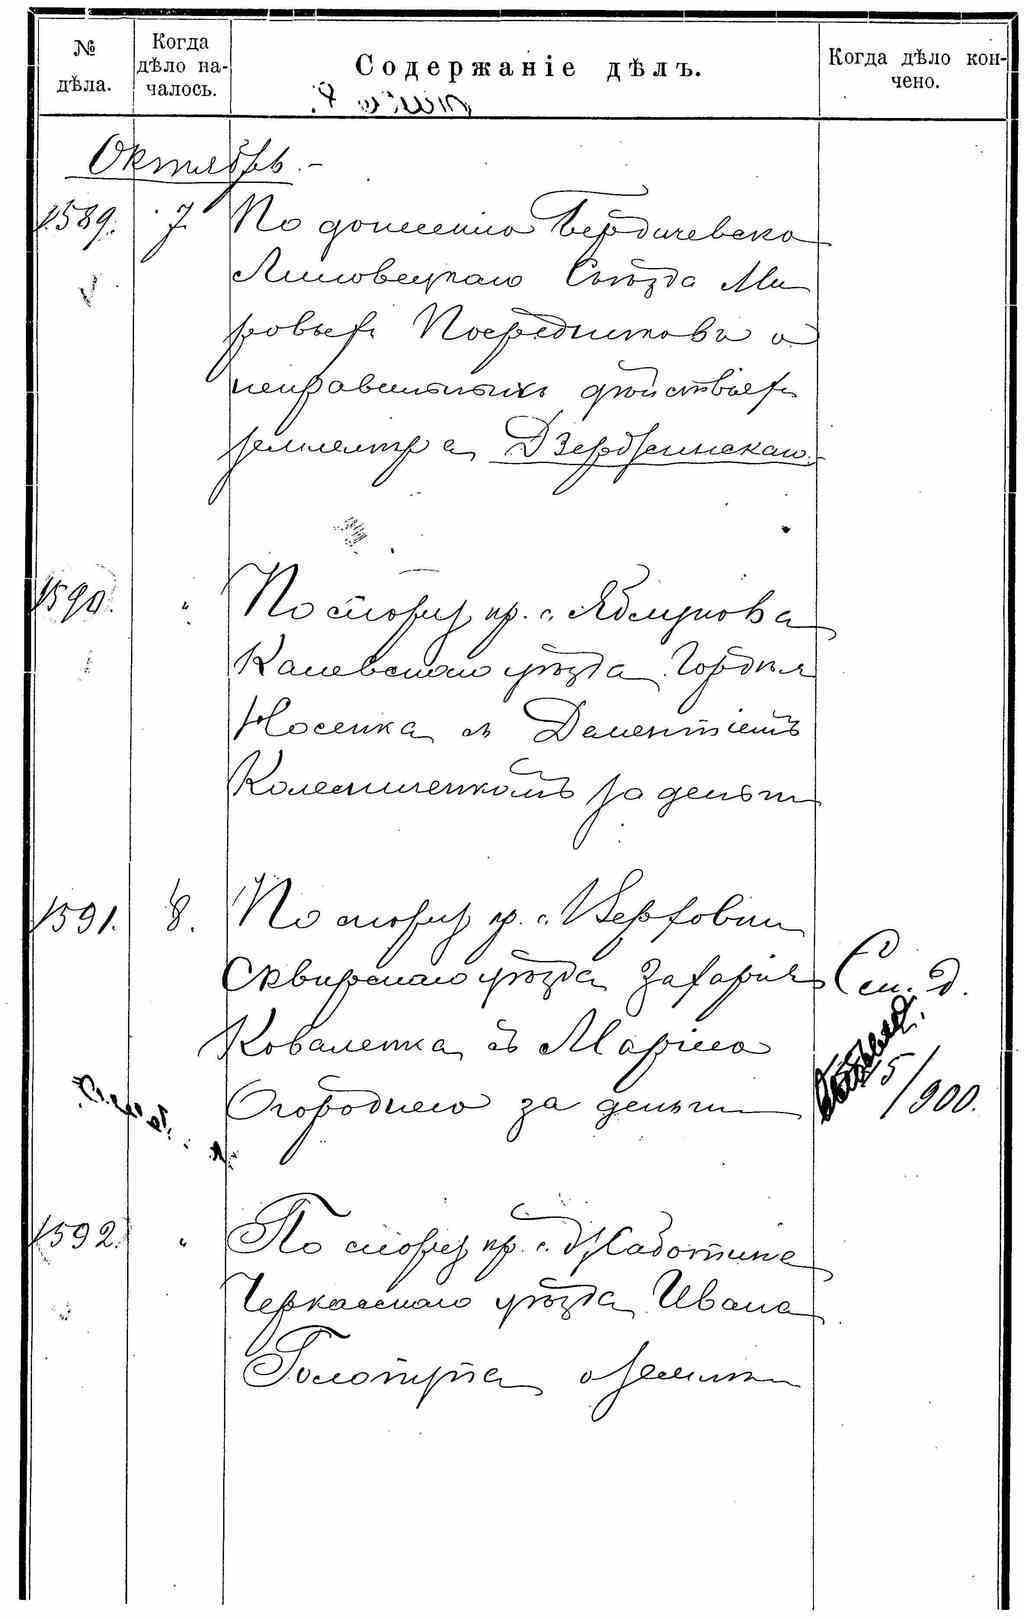 № дѣла.
Когда дѣло на-
чалось.
Содержаніе дѣлъ.
Когда дѣло кон-
чено.
Октябрь.-
1589. 7 По донесенію Бердичевско
Липовецкаго Съѣзда Ми
ровыхъ Посредниковъ о
неправильныхъ дѣйствіяхъ
землемѣра Дзержинскаго.
1590. " По спору кр. с. Яблунова
Каневскаго уѣзда Гордѣя
Носенка съ Дементіемъ
Колесниченкомъ за деньги
1591. 8. По спору кр. с. Верховни
Сквирскаго уѣзда Захарія
Коваленка съ Маріею
Огородн за деньги
См. д.
5/900.
1592. " По спору кр. с. Жаботина
Черкасскаго уѣзда Ивана
о земли